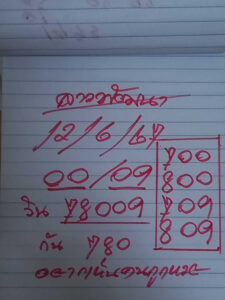 ลาวพัฒนา
12/6/67
00/09
วิน 78009
กัน 780
อยากเห็นคนถูกหวย
700
800
709
809